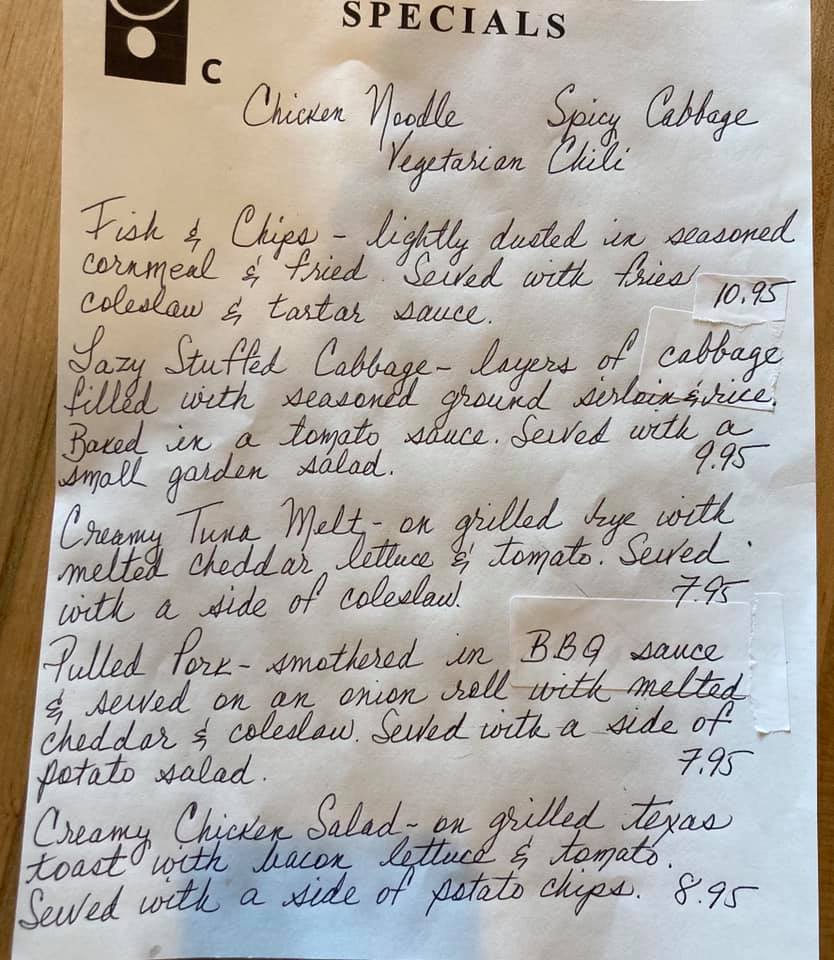 SPECIALS
C
Chicken Noodle Spicy Cabbage
Vegetarian Chili
Fish & Chips - lightly dusted in seasoned
cornmeal & fried. Served with fries
coleslaw & tartar sauce. 10.95
Lazy Stuffed Cabbage - layers of cabbage
filled with seasoned ground sirloin & rice.
Baked in a tomato sauce. Served with a
small garden salad. 9.95
Creamy Tuna Melt - on grilled rye with
melted cheddar lettuce & tomato. Served
with a side of coleslaw. 7.95
Pulled Pork - smothered in BBQ sauce
& served on an onion roll with melted
cheddar & coleslaw. Served with a side of
potato salad. 7.95
Creamy Chicken Salad - on grilled texas
toast with bacon lettuce & tomato.
Served with a side of potato chips. 8.95